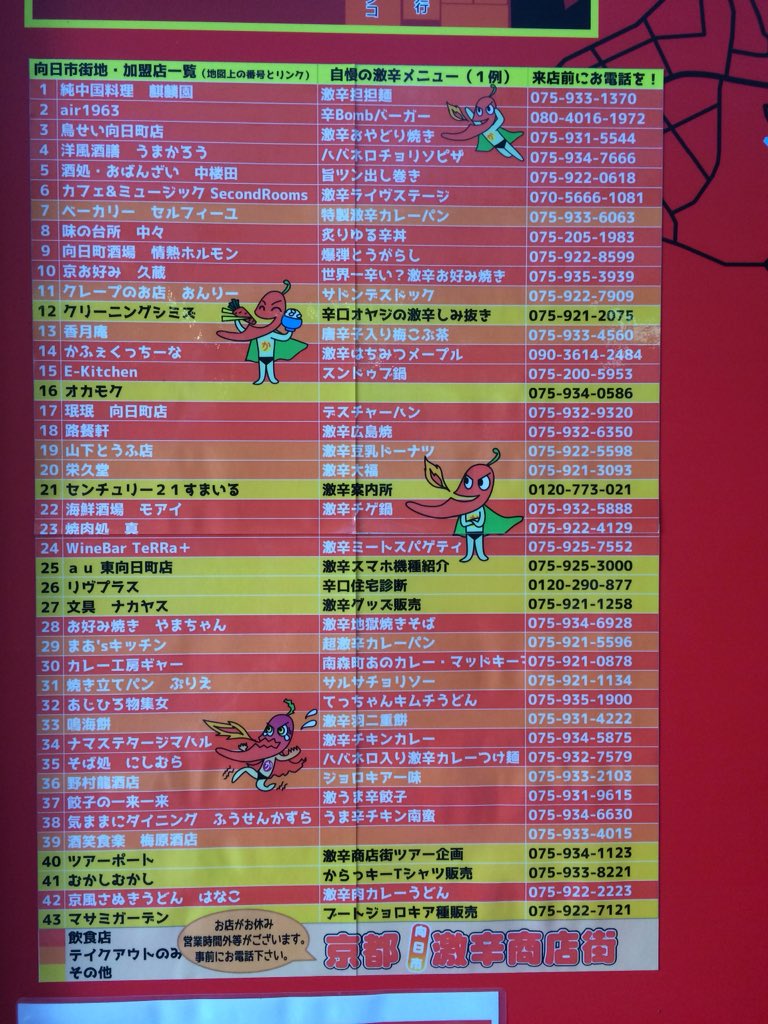 行
向日市街地・加盟店一覧（地図上の番号とリンク） 自慢の激辛メニュー（１例） 来店前にお電話を！
1 純中国料理　麒麟園 激辛担担麺 075-933-1370
2 air1963 辛Bombバーガー 080-4016-1972
3 鳥せい向日町店 激辛おやどり焼き 075-931-5544
4 洋風酒膳　うまかろう ハバネロチョリソピザ 075-934-7666
5 酒処・おばんざい　中楼田 旨ツン出し巻き 075-922-0618
6 カフェ&ミュージック SecondRooms 激辛ライヴステージ 070-5666-1081
7 ベーカリー　セルフィーユ 特製激辛カレーパン 075-933-6063
8 味の台所　中々 炙りゆる辛丼 075-205-1983
9 向日町酒場　情熱ホルモン 爆弾とうがらし 075-922-8599
10 京お好み　久蔵 世界一辛い？激辛お好み焼き 075-935-3939
11 クレープのお店　おんりー サドンデスドック 075-922-7909
12 クリーニングシミズ 辛口オヤジの激辛しみ抜き 075-921-2075
13 香月庵 唐辛子入り梅こぶ茶 075-933-4560
14 かふぇくっちーな 激辛はちみつメープル 090-3614-2484
15 E-Kitchen スンドゥブ鍋 075-200-5953
16 オカモク 075-934-0586
17 珉珉　向日町店 デスチャーハン 075-932-9320
18 路餐軒 激辛広島焼 075-932-6350
19 山下とうふ店 激辛豆乳ドーナツ 075-922-5598
20 栄久堂 激辛大福 075-921-3093
21 センチュリー２１すまいる 激辛案内所 0120-773-021
22 海鮮酒場　モアイ 激辛チゲ鍋 075-932-5888
23 焼肉処　真 075-922-4129
24 WineBar TeRRa＋ 激辛ミートスパゲティ 075-925-7552
25 ａｕ 東向日町店 激辛スマホ機種紹介 075-925-3000
26 リヴプラス 辛口住宅診断 0120-290-877
27 文具　ナカヤス 激辛グッズ販売 075-921-1258
28 お好み焼き　やまちゃん 激辛地獄焼きそば 075-934-6928
29 まあ'sキッチン 超激辛カレーパン 075-921-5596
30 カレー工房ギャー 南森町あのカレー・マッドキー 075-921-0878
31 焼き立てパン　ぷりえ サルサチョリソー 075-921-1134
32 あじひろ物集女 てっちゃんキムチうどん 075-935-1900
33 鳴海餅 激辛羽二重餅 075-931-4222
34 ナマステタージマハル 激辛チキンカレー 075-934-5875
35 そば処　にしむら ハバネロ入り激辛カレーつけ麺 075-932-7579
36 野村龍酒店 ジョロキアー味 075-933-2103
37 餃子の一来一来 激うま辛餃子 075-931-9615
38 気ままにダイニング　ふうせんかずら うま辛チキン南蛮 075-934-6630
39 酒笑食楽　梅原酒店 075-933-4015
40 ツアーポート 激辛商店街ツアー企画 075-934-1123
41 むかしむかし からっキーTシャツ販売 075-933-8221
42 京風さぬきうどん　はなこ 激辛肉カレーうどん 075-922-2223
43 マサミガーデン ブートジョロキア種販売 075-922-7121
飲食店
テイクアウトのみ
その他
お店がお休み
営業時間外等がございます。
事前にお電話下さい。
京都 向日市 激辛商店街